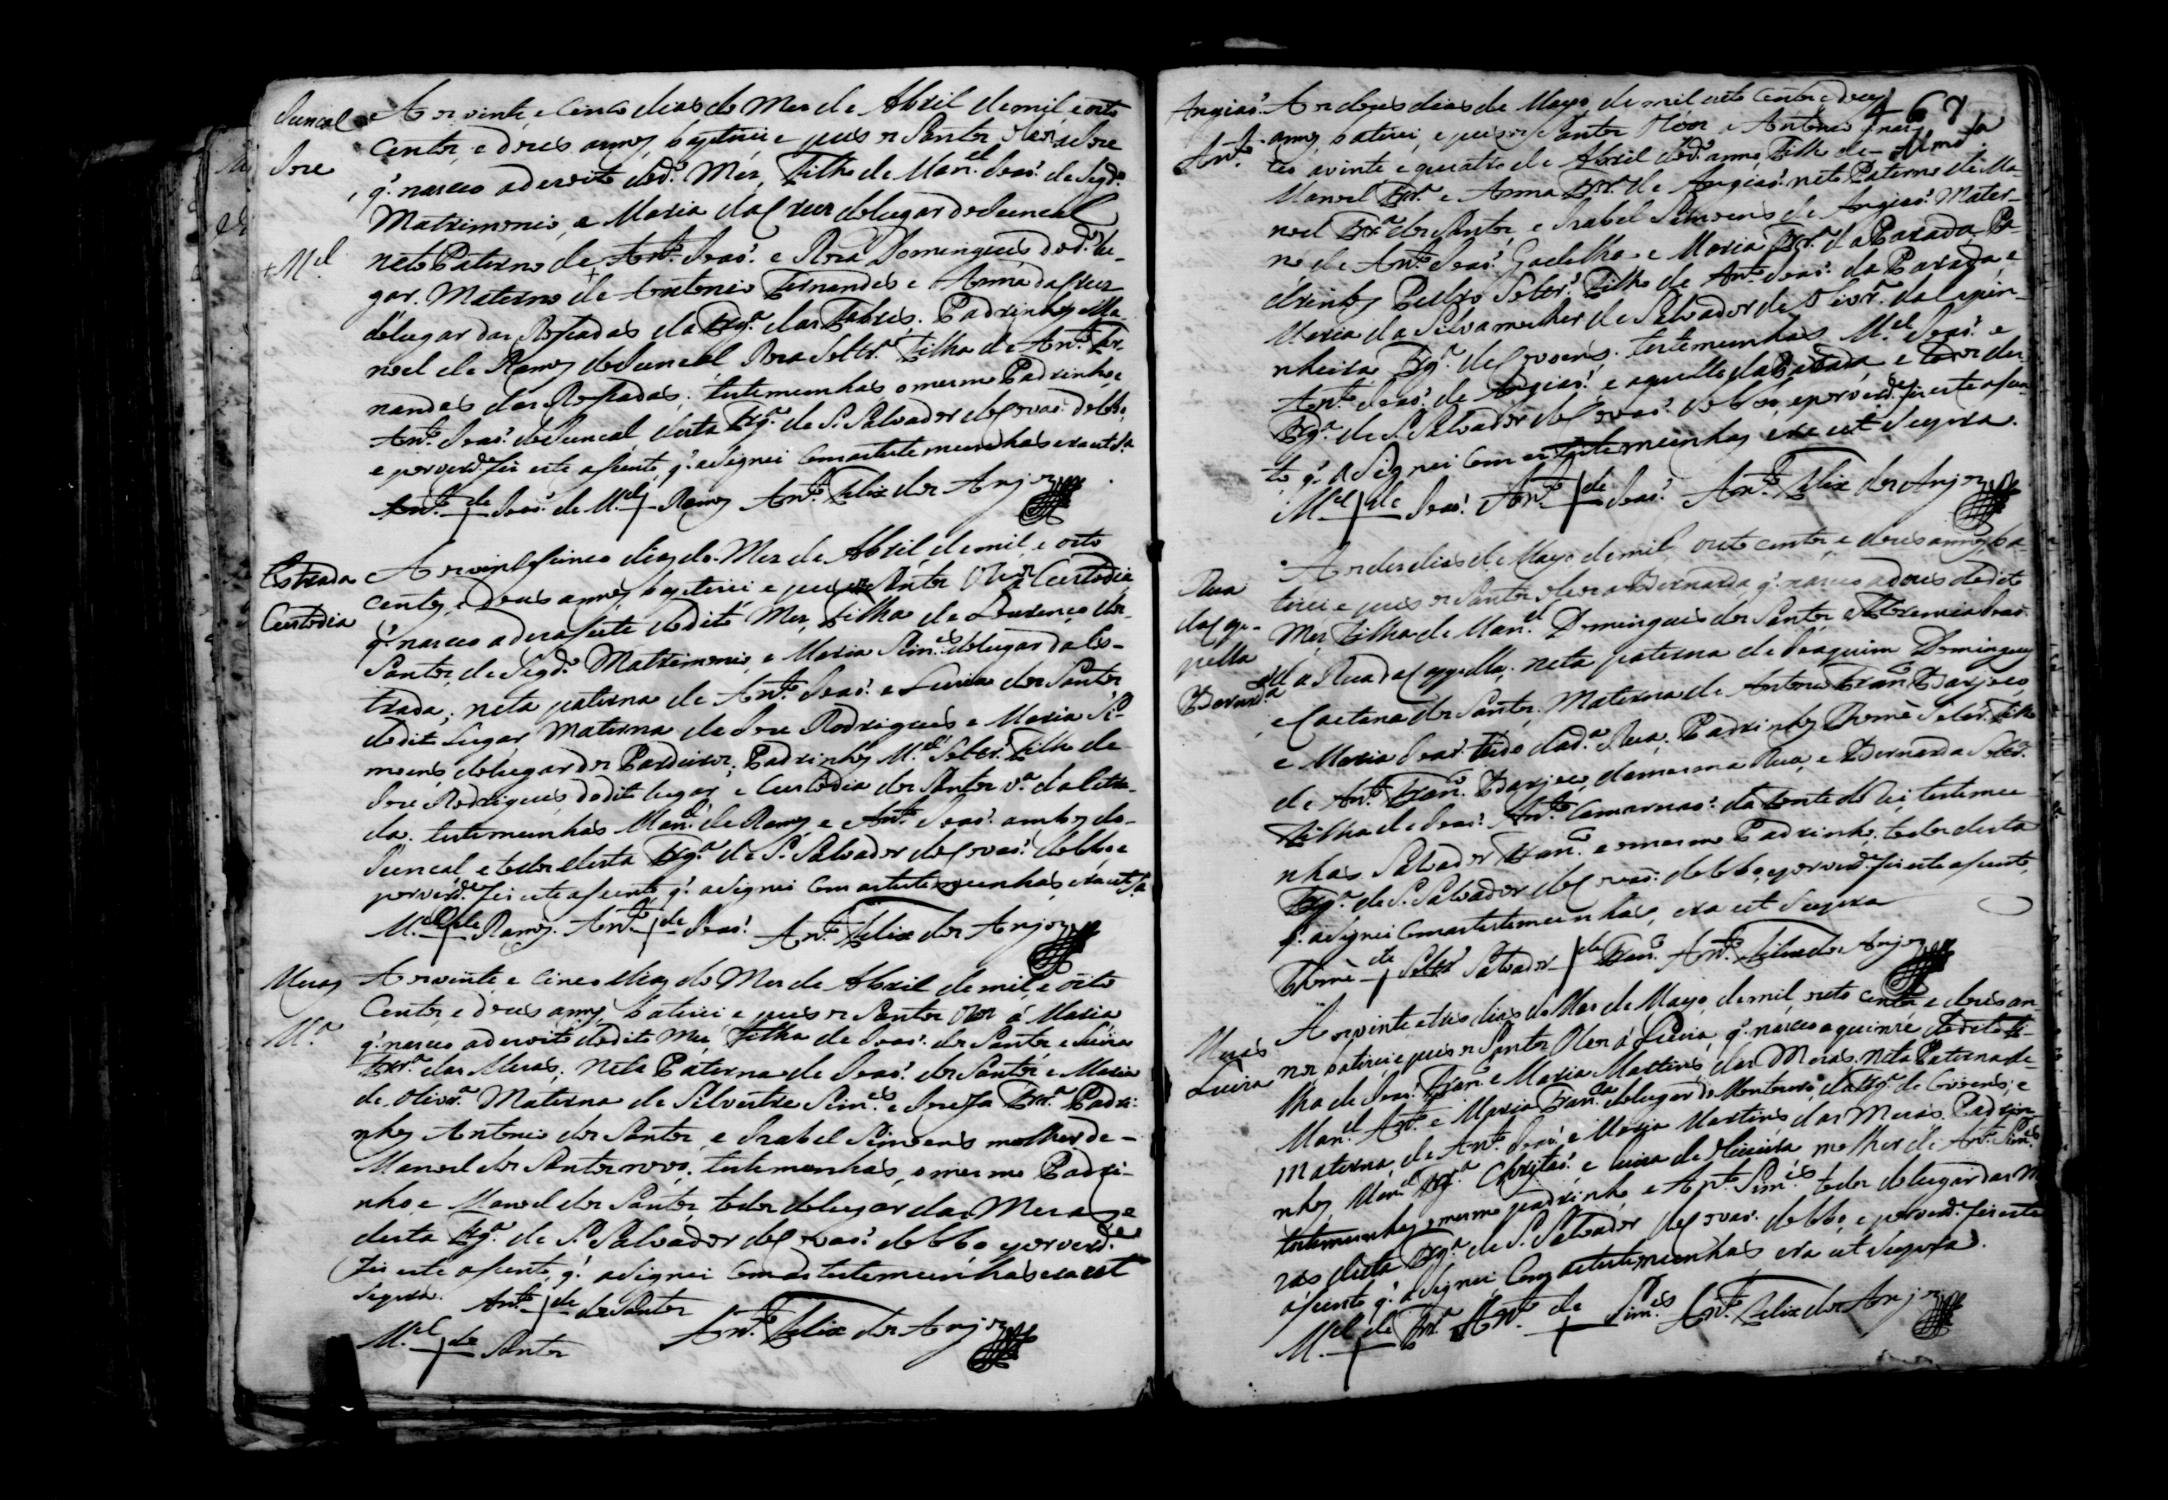 Juncal
Joze
+ M.el
Aos vinte, e cinco dias do Mes de Abril de mil, e oito
centos, e dous annos baptizei e pus os Santos Oleos a Joze
q̃. nasceo a dezoito do d.º Mes, Filho de Man.el Joaõ. de Seg.do
Matrimonio, e Maria da Cruz do lugar do Juncal
neto Paterno de Ant.º Joaõ. e Roza Domingues do d.º lu-
gar. Materno de Antonio Fernandes e Anna da Cruz
do lugar das da Frg.ª das Febres. Padrinhos Ma-
noel de Ramos do Juncal Roza Soltr.ª Filha de Ant.º Fer-
nandes das testemunhas o mesmo Padrinho, e
Ant.º Joaõ. do Juncal, desta Frg.ª de S. Salvador de Covaõ. do Lobo,
e por verd.e fiz este assento, q̃. asignei com as testemunhas era ut S.ª
Ant.º de Joaõ. de M.el Ramos Ant.º Felix dos Anjos
Estrada
Custodia
Aos vinte, e sinco dias do Mes de Abril de mil, e oito
centos, e dous annos baptizei e pus os Santos Oleos a Custodia
q̃. nasceo a dezasete do dito Mes, Filha de Lourenço dos
Santos, de Seg.do Matrimonio, e Maria Sim.es do lugar da Es-
trada; neta paterna de Ant.º Joaõ. e Luiza dos Santos
do dito Lugar, Materna de Joze Rodrigues e Maria Si-
moens do lugar dos Pardieiros; Padrinhos M.el Soltr.º Filho de
Joze Rodrigues, do dito lugar, e Custodia dos Santos v.ª da Estra-
da. testemunhas Man.el de Ramos, e Ant.º Joaõ. ambos do
Juncal, e todos desta Frg.ª de S. Salvador de Covaõ. do Lobo e
por verd.e fiz este assento, q̃. asignei com as testemunhas, era ut S.ª
M.el de Ramos. Ant.º de Joaõ. Ant.º Felix dos Anjos
Mezas
M.ª
Aos vinte, e cinco dias do Mes de Abril de mil, e oito
Centos, e dous annos, batizei e pus os Santos Oleos á Maria
q̃. nasceo a dezoito do dito Mes, Filha de Joaõ. dos Santos e Luiza
Frr.ª das Mezas; Neta Paterna de Joaõ. dos Santos e Maria
de Olivr.ª Materna de Silvestre Sim.es e Josefa Frr.ª Padri-
nhos Antonio dos Santos, e Izabel Simoens molher de
Manoel dos Santos novo. testemunhas, o mesmo Padri-
nho, e Manoel dos Santos todos do lugar das Mezas, e
desta Frg.ª de S. Salvador de Covaõ. do Lobo e por verd.e
fiz este assento, q̃. asignei com as testemunhas era ut
Supra. Ant.º de dos Santos
M.el de Santos Ant.º Felix dos Anjos
468
Angiaõ.
Ant.º
Aos dous dias de Mayo de mil oito centos, e dous
annos, batizei, e pus os Santos Oleos a Antonio q̃ nas-
ceo a vinte, e quatro de Abril do d.º anno, Filho de
Manoel Frr.ª e Anna Frr.ª de Angiaõ. neto Paterno de Ma-
noel Frr.ª dos Santos, e Izabel Simoens de Angiaõ. Mater-
no de Ant.º Joaõ. Gadelha e Maria Frr.ª da Parada, Pa-
drinhos Pedro Soltr.º Filho de Ant.º Joaõ. da Parada, e
Maria da Silva mulher de Salvador de Olivr.ª da Lapin-
nheira Frg.ª de Covoens; testemunhas M.el Joaõ. e
Ant.º Joaõ. de Angiaõ. e aquelle da Parada, e todos da
Frg.ª de S. Salvador de Covaõ. do Lobo, e por verd.e fiz este assen-
to, q̃. asignei com as testemunhas era ut Supra.
M.el de Joaõ. Ant.º de Joaõ. Ant.º Felix dos Anjos
Rua
da Cap-
pella
Bernard.ª
Aos des dias de Mayo de mil oito centos, e dous annos, ba-
tizei e pus os Santos Oleos a Bernarda, q̃. nasceo a dous do dito
Mes, Filha de Man.el Domingues dos Santos,
da Rua da Cappella. neta paterna de Joaquim Domingues
e Caetana dos Santos, Materna de Antonio Fran.co
e Maria Joaõ. tudo da d.ª Rua, Padrinhos Thomé Soltr.º Filho
de Ant.º Fran.co da mesma Rua, e Bernarda Soltr.ª
Filha de Joaõ. Ant.º da testemu-
nhas Salvador Fran.co e o mesmo Padrinho, todos desta
Frg.ª de S. Salvador de Covaõ. do Lobo, e por verd.e fiz este assento,
q̃. asignei com as testemunhas, era ut Supra
Thomé de Soltr.º Salvador de Fran.co Ant.º Felix dos Anjos
Mezas
Luiza
Aos vinte e tres dias do Mes de Mayo, de mil oito centos e dous an-
nos, batizei, e pus os Santos Oleos á Luiza, q̃. nasceo a quinze do dito Fi-
lha de Joaõ. Fran.co e Maria Martins das Mezas. neta Paterna de
Man.el Ant.º e Maria Fran.ca do lugar do da Frg.ª de Covoens; e
Materna, de Ant.º Joaõ. e Maria Martins das Mezas. Padrin-
nhos, Man.el Frr.ª e Luiza de Oliveira molher de Ant.º Sim.es
testemunhas, o mesmo padrinho, e Ant.º Sim.es todos do lugar das Me-
zas desta Frg.ª de S. Salvador de Covaõ. do Lobo, e por verd.e fiz este
assento, q̃. asignei com as testemunhas era ut Supra.
M.el de Frr.ª Ant.º de Sim.es Ant.º Felix dos Anjos